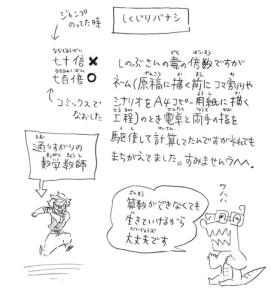 しくじりバナシ
ジャンプ
のってた時
七十倍 ✖
七百倍 ○
コミックスで
なおした
しのぶさんの毒の倍数ですが
ネーム(原稿に描く前にコマ割りや
シナリオをA4コピー用紙に描く
工程)のとき電卓と両手の指を
駆使して計算してたんですがそれでも
まちがえてました。すみませんうへへ。
通りすがりの
数学教師
算数ができなくても
生きていけるから
大丈夫です
ワハハ